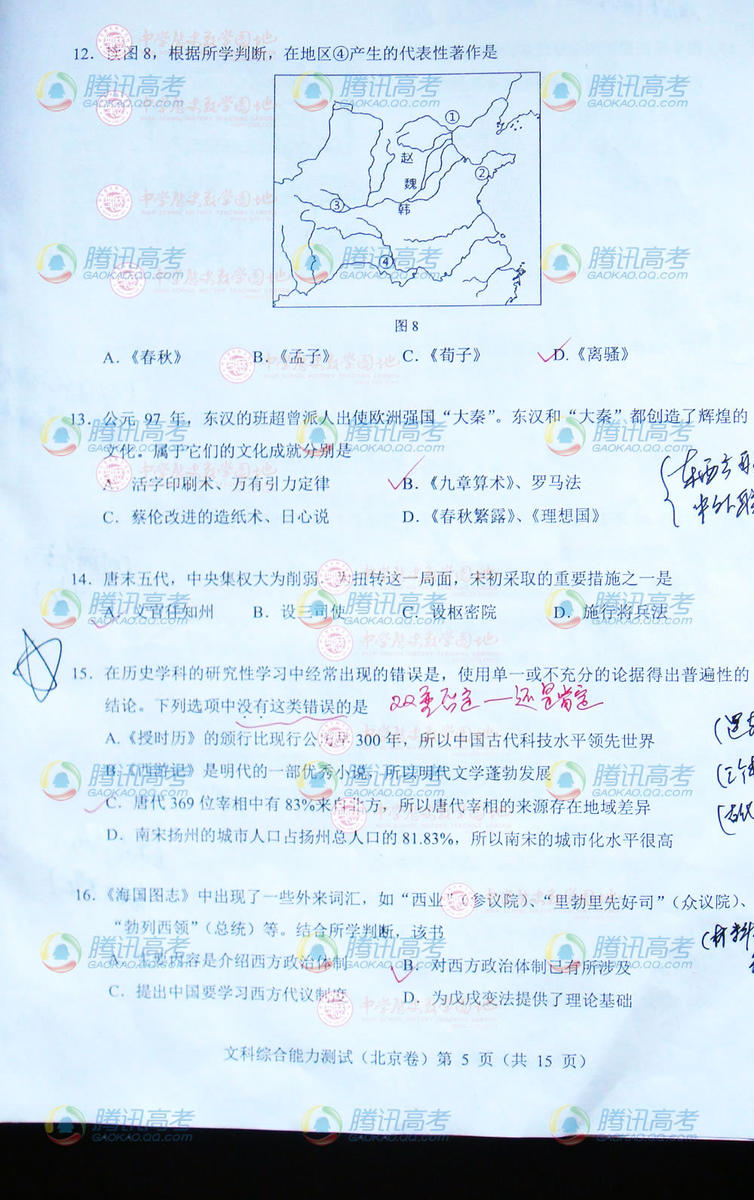 12. 读图 8，根据所学判断，在地区④产生的代表性著作是
①
赵
魏
②
③
韩
④
图 8
A.《春秋》 B.《孟子》 C.《荀子》 D.《离骚》
13. 公元 97 年，东汉的班超曾派人出使欧洲强国“大秦”。东汉和“大秦”都创造了辉煌的
文化。属于它们的文化成就分别是
A. 活字印刷术、万有引力定律 B.《九章算术》、罗马法
C. 蔡伦改进的造纸术、日心说 D.《春秋繁露》、《理想国》
14. 唐末五代，中央集权大为削弱。为扭转这一局面，宋初采取的重要措施之一是
A. 文官任知州 B. 设三司使 C. 设枢密院 D. 施行将兵法
15. 在历史学科的研究性学习中经常出现的错误是，使用单一或不充分的论据得出普遍性的
结论。下列选项中没有这类错误的是
A.《授时历》的颁行比现行公历早 300 年，所以中国古代科技水平领先世界
B.《西游记》是明代的一部优秀小说，所以明代文学蓬勃发展
C. 唐代 369 位宰相中有 83%来自北方，所以唐代宰相的来源存在地域差异
D. 南宋扬州的城市人口占扬州总人口的 81.83%，所以南宋的城市化水平很高
16.《海国图志》中出现了一些外来词汇，如“西业”（参议院）、“里勃里先好司”（众议院）、
“勃列西领”（总统）等。结合所学判断，该书
A. 主要内容是介绍西方政治体制 B. 对西方政治体制已有所涉及
C. 提出中国要学习西方代议制度 D. 为戊戌变法提供了理论基础
文科综合能力测试（北京卷）第 5 页（共 15 页）
腾讯高考
GAOKAO.QQ.COM
中学历史教学园地